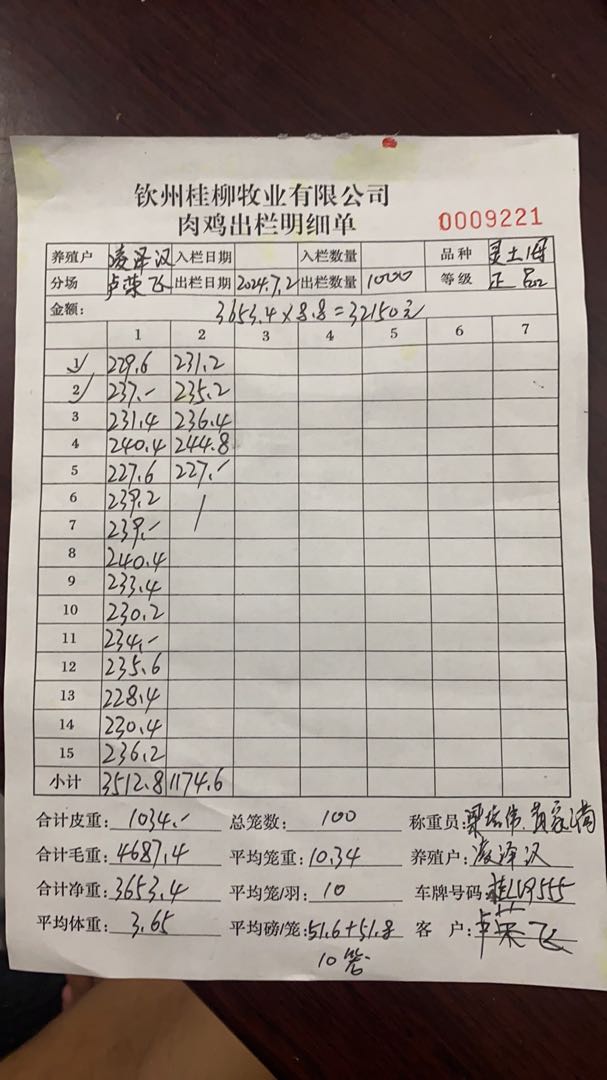 钦州桂柳牧业有限公司
肉鸡出栏明细单 0009221
养殖户 凌泽汉 入栏日期 入栏数量 品种 灵土1号
分场 卢荣飞 出栏日期 2024.7.2 出栏数量 1000 等级 正品
金额: 3653.4×8.8=32150元
1 2 3 4 5 6 7
1 229.6 231.2
2 237.- 235.2
3 231.4 236.4
4 240.4 244.8
5 227.6 227.-
6 239.2
7 239.-
8 240.4
9 233.4
10 230.2
11 234.-
12 235.6
13 228.4
14 230.4
15 236.2
小计 3512.8 1174.6
合计皮重: 1034.- 总笼数: 100 称重员:
合计毛重: 4687.4 平均笼重: 10.34 养殖户: 凌泽汉
合计净重: 3653.4 平均笼/羽: 10 车牌号码:
平均体重: 3.65 平均磅/笼: 51.6+51.8 客户: 卢荣飞
10笼